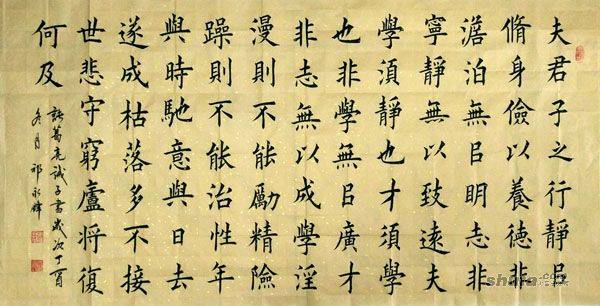 夫君子之行靜㠯
脩身儉以養德非
澹泊無㠯明志非
寧靜無以致遠夫
學須靜也才須學
也非學無㠯廣才
非志無以成學淫
漫則不能勵精險
躁則不能治性年
與時馳意與日去
遂成枯落多不接
世悲守窮廬將復
何及
諸葛亮誡子書歲次丁酉
冬月 祁永